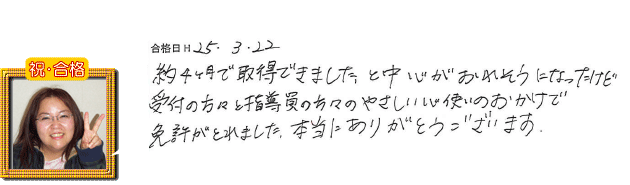 祝・合格
合格日 H 25. 3. 22
約4ヶ月で取得できました。と中心がおれそうになったけど
受付の方々と指導員の方々のやさしい心使いのおかげで
免許がとれました。本当にありがとうございます。